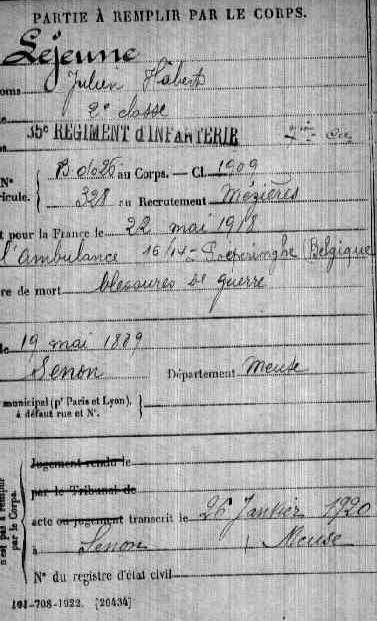 PARTIE À REMPLIR PAR LE CORPS.
Léjeune
oms Julien Hubert
2e classe
35e REGIMENT d'INFANTERIE
N° au Corps. — Cl. 1909
ricule. 328 au Recrutement Mézières
t pour la France le 22 mai 1918
l'ambulance 16/14 Poperinghe (Belgique
re de mort blessures de guerre
le 19 mai 1889
Senon Département Meuse
municipal (pr Paris et Lyon),
à défaut rue et N°.
Jugement rendu le
par le Tribunal de
acte ou jugement transcrit le 26 Janvier 1920
à Senon Meuse
N° du registre d'état civil
n'est pas remplir
par le Corps.
101-708-1922. [26434]